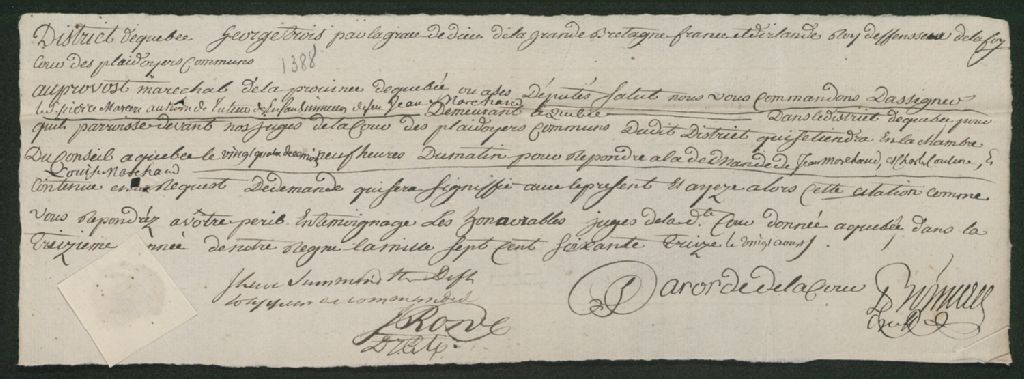 District de quebec George trois par la grace de dieu de la Grande Bretagne france et D'irlande Roy deffenseur de la foy
Cour des plaidoyers Communs
1388
au prevost marechal de la province de quebec ou a ses Députés Salut nous vous commandons D'assigner
le Sr pierre Moreau au nom de tuteur des Enfans mineurs de feu Jean Marchand Demeurant a Quebec Dans le district de quebec pour
quil parroisse devant nos juges de la Cour des plaidoyers Communs Dudit District qui se tiendra En la chambre
Du Conseil a quebec le neuf heures Du matin pour Repondre a la demande de Jean Marchand, Charles &
Louis Marchand
Contenue en Request De demande qui sera signiffié avec le present Et ayez alors Cette citation comme
vous Repondréz a votre peril En temoignage Les honorables juges de la dte Cour donnée a quebec dans la
Treizieme année de notre Regne la mille Sept Cent Soixante Treize le vingt aoust
I have Summond the Deft
Par ordre de la Cour
J Rowe